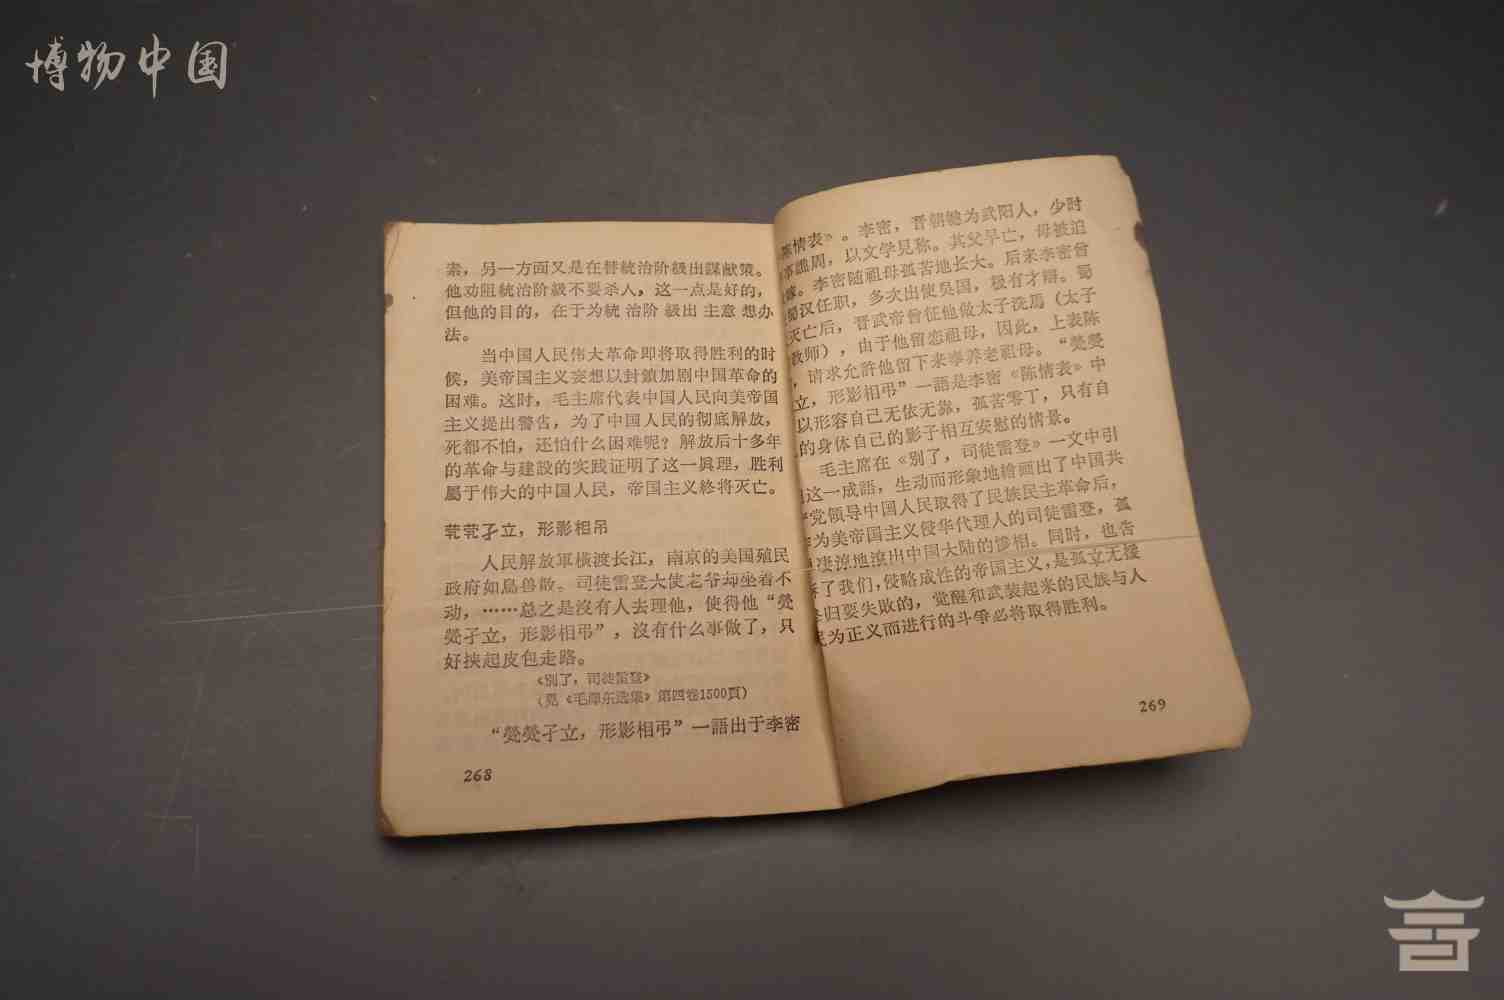 博物中国
素，另一方面又是在替統治阶級出謀献策。
他劝阻統治阶級不要杀人，这一点是好的，
但他的目的，在于为統治阶級出主意想办
法。
当中国人民伟大革命即将取得胜利的时
候，美帝国主义妄想以封鎖加剧中国革命的
困难。这时，毛主席代表中国人民向美帝国
主义提出警告，为了中国人民的彻底解放，
死都不怕，还怕什么困难呢？解放后十多年
的革命与建設的实践证明了这一眞理，胜利
屬于伟大的中国人民，帝国主义終将灭亡。
茕茕孑立，形影相吊
人民解放軍橫渡长江，南京的美国殖民
政府如鳥兽散。司徒雷登大使老爷却坐着不
动，……总之是沒有人去理他，使得他“煢
煢孑立，形影相弔”，沒有什么事做了，只
好挾起皮包走路。
《別了，司徒雷登》
（見《毛澤东选集》第四卷1500頁）
“煢煢孑立，形影相弔”一語出于李密
268
陈情表》。李密，晋朝犍为武阳人，少时
事譙周，以文学見称。其父早亡，母被迫
嫁。李密随祖母孤苦地长大。后来李密曾
蜀汉任职，多次出使吳国，极有才辯。蜀
灭亡后，晋武帝曾征他做太子洗馬（太子
教师），由于他留恋祖母，因此，上表陈
，请求允許他留下来奉养老祖母。“煢煢
立，形影相弔”一語是李密《陈情表》中
以形容自己无依无靠，孤苦零丁，只有自
的身体自己的影子相互安慰的情景。
毛主席在《別了，司徒雷登》一文中引
这一成語，生动而形象地繪画出了中国共
党领导中国人民取得了民族民主革命后，
为美帝国主义侵华代理人的司徒雷登，孤
凄涼地滾出中国大陆的惨相。同时，也告
訴了我们，侵略成性的帝国主义，是孤立无援
归要失敗的，觉醒和武装起来的民族与人
民为正义而进行的斗爭必将取得胜利。
269